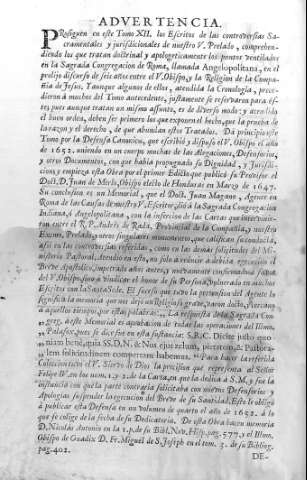 ADVERTENCIA.
PRosiguen en este Tomo XII. los Escritos de las controversias Sa-
cramentales y jurisdicionales de nuestro V. Prelado, comprehen-
diendo los que doctrinal y apologeticamente los puntos ventilados
en la Sagrada Congregacion de Roma, llamada Angelopolitana, en el
prolijo discurso de seis años entre el V. Obispo, y la Religion de la Compa-
ñia de Jesus. Y aunque algunos de ellos, atendida la Cronologia, prece-
dieron à muchos del Tomo antecedente, justamente se reservaron para és-
te; pues aunque tratan un mismo asunto, es de diverso modo: y atendido
el buen orden, deben ser primero los que exponen el hecho, que la prueba de
la razon y el derecho, de que abundan estos Tratados. Dá principio este
Tomo por la Defensa Canonica, que escribió y dispuso el V. Obispo el año
de 1652. uniendo en un cuerpo muchas de las Alegaciones, Defensorios,
y otros Documentos, con que habia propugnado su Dignidad, y Jurisdic-
cion, y empieza esta Obra por el primer Edicto que publicó su Provisor el
Doct. D. Juan de Merlo, Obispo electo de Honduras en Marzo de 1647.
Su conclusion es un Memorial, que el Doct. Juan Magano, Agente en
Roma de las Causas de nuestro V. Escritor, dió à la Sagrada Congregacion
Indiana, ò Angelopolitana, con la insercion de las Cartas que intervinie-
ron entre el R. P. Andrés de Rada, Provincial de la Compañia, y nuestro
Exmo. Prelado,
asi en las controversias referidas, como en las demás
nisterio Pastoral. Atendio en esto, no solo à reducir à debida egecucion el
Breve Apostolico, impetrado años antes, y nuevamente confirmado à favor
del V. Obispo, sino à vindicar el honor de su Persona,
Escritos con la Santa Sede. El suceso que tuvo la pretension del Agente lo
significa la memoria que nos dejó un Religioso grave,
à aquellos tiempos, por estas palabras: „ La respuesta de la Sagrada Con-
„ greg. à este Memorial es aprobacion de todas las operaciones del Illmo.
„ Palafox, pues se dice fue en esta sustancia: S.R.C. Dicite justo quo-
niam bené, quia SS.D.N. & Nos ejus zelum, peritiam, & Pastora-
lem solicitudinem compertam habemus.
Felipe IV. en los num. 1. 2. y 3. de la Carta, en que la dedica à S.M. y fue la
instancia con que la parte contraria solicitaba con nuevos Defensorios y
Apologias suspender la egecucion del Breve de su Santidad. Esto le obligó
à publicar esta Defensa en un volumen de quarto el año de 1652. à lo
que se colige de la fecha de su Dedicatoria. De esta Obra hacen memoria
D. Nicolás Antonio en la 2. p. de su Bibl. Nov. Hisp. pag. 577. y el Illmo.
Obispo de Guadix D. Fr. Miguel de S. Joseph en el tom. 3. de su Bibliog.
pag. 402.
DE-